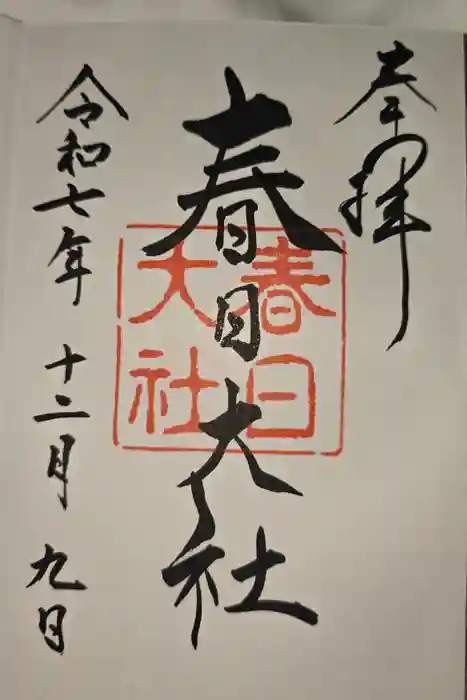 奉拝
春日大社
春日
大社
令和七年 十二月 九日